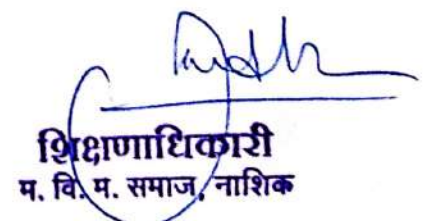 शिक्षणाधिकारी
म. वि. प्र. समाज, नाशिक